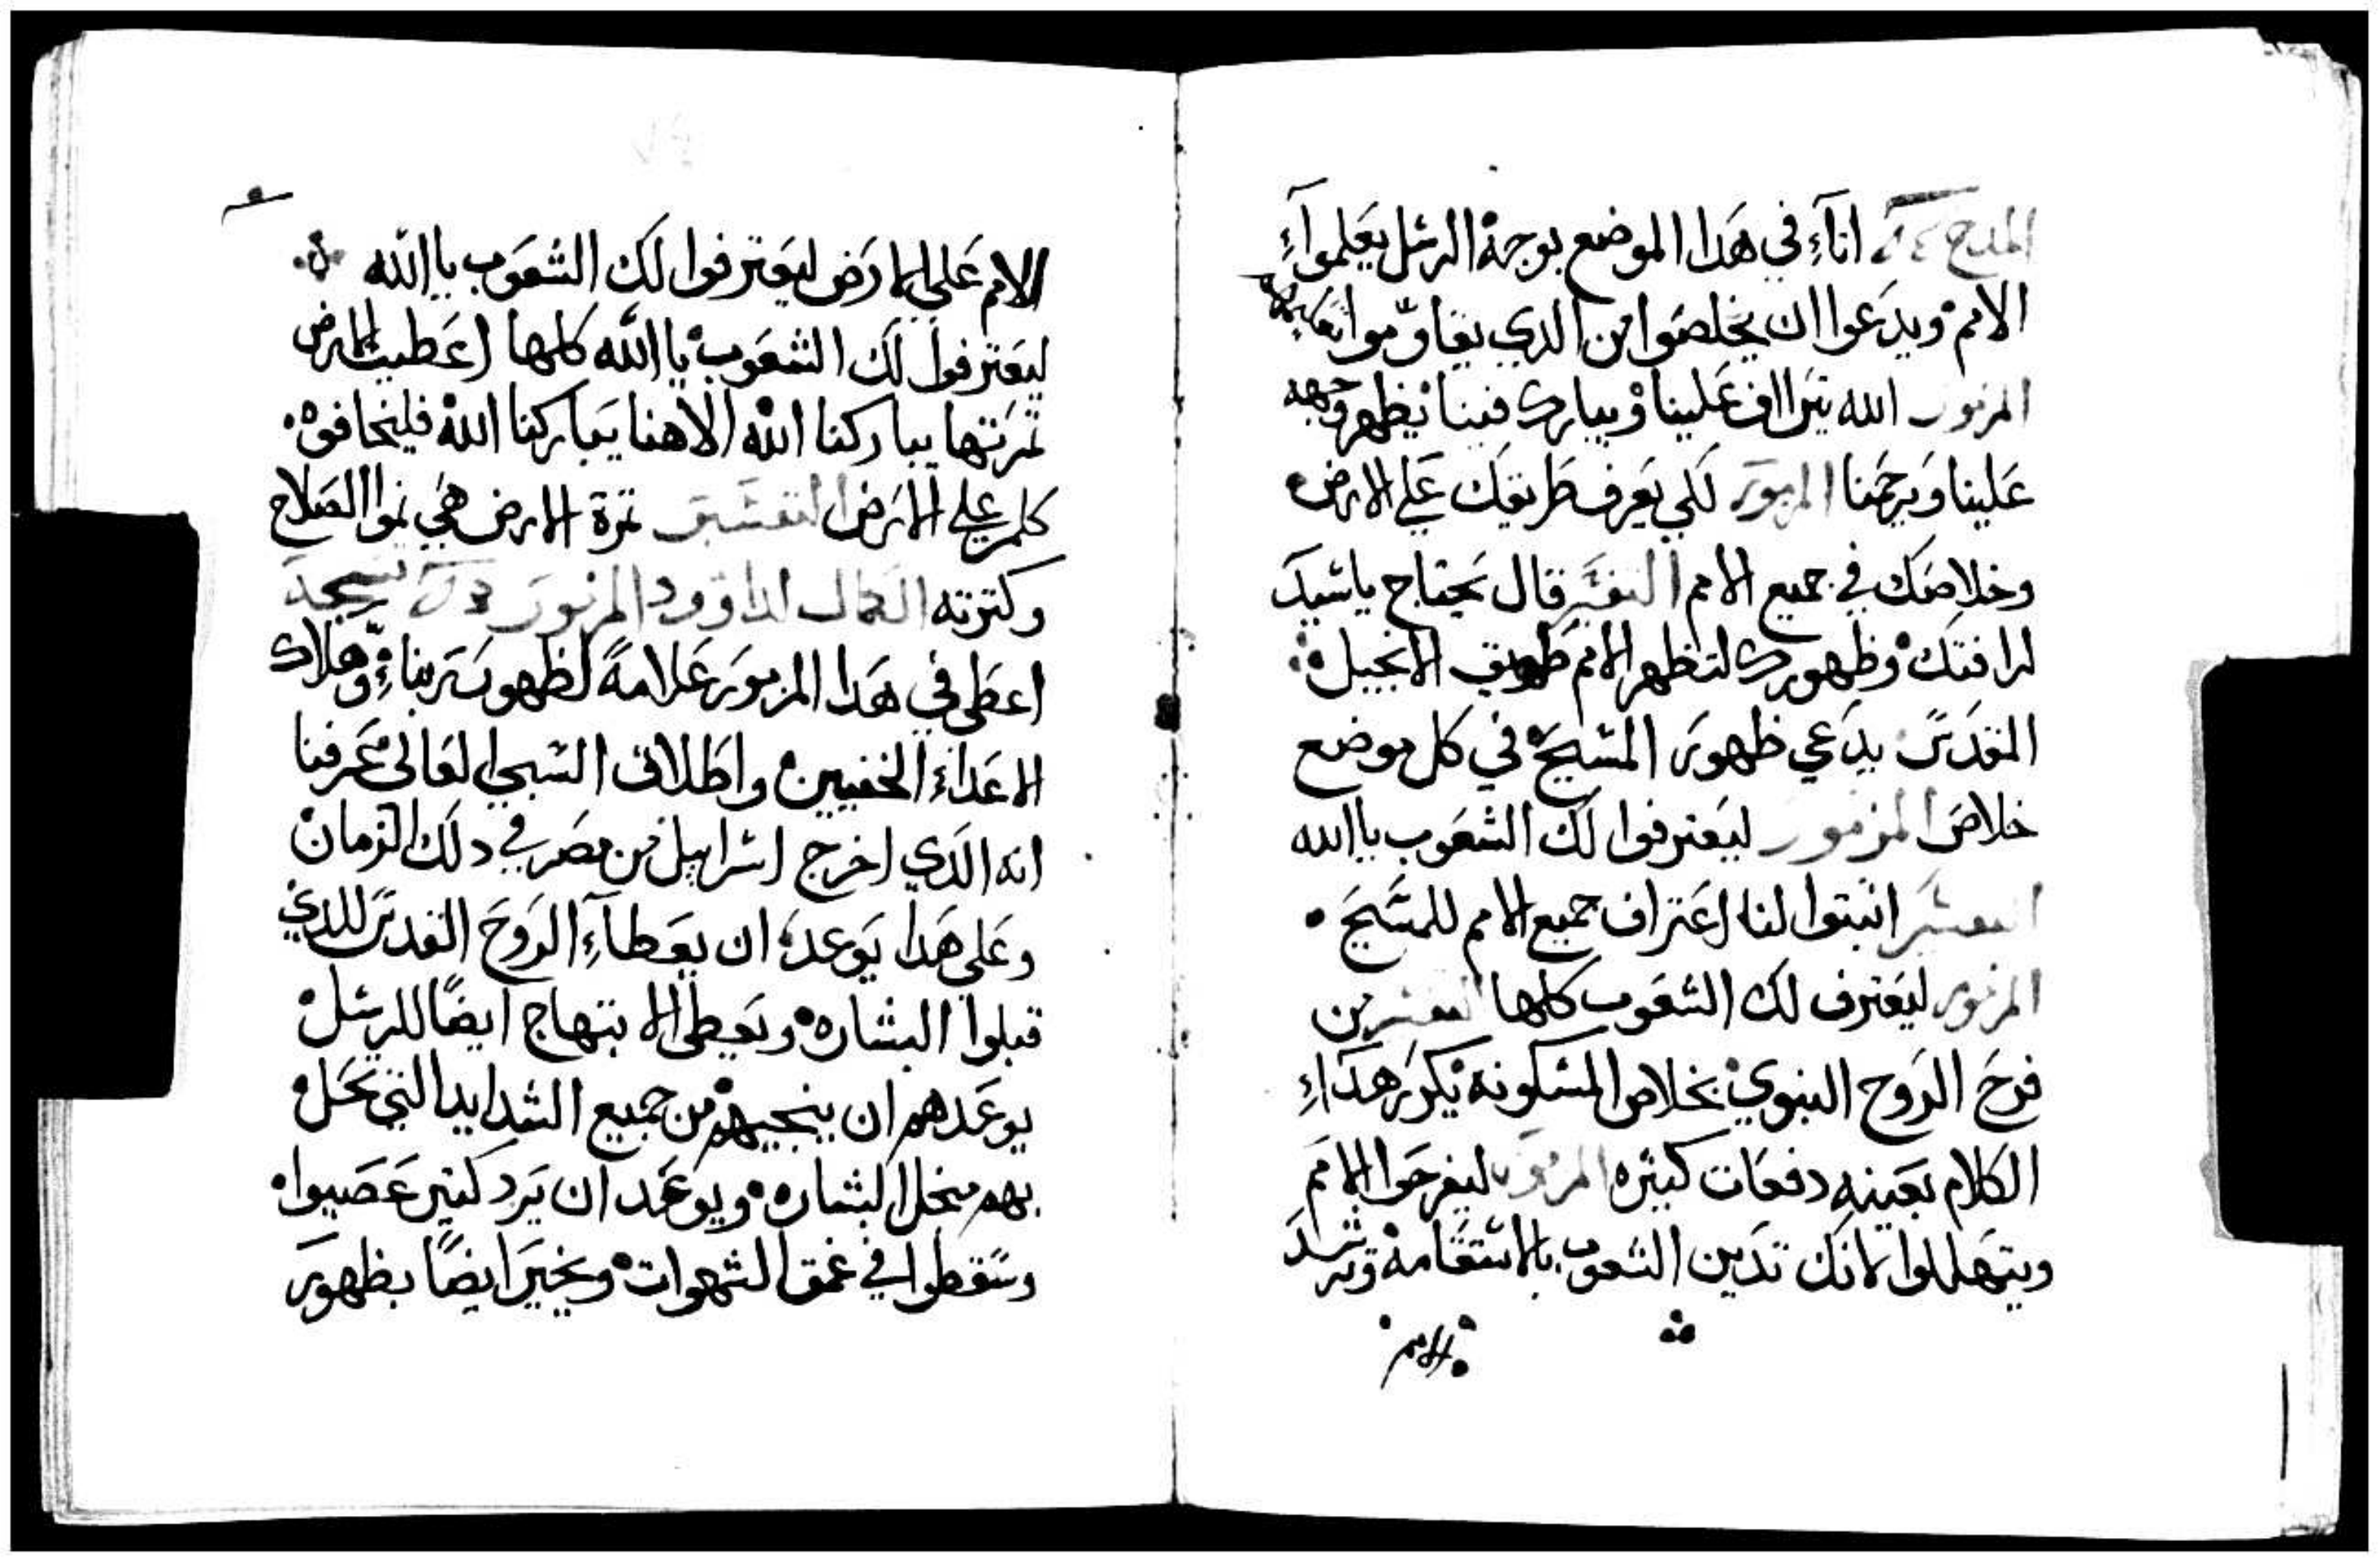 المدح انآءِ في هَدا الموضع بوجهْ الرسُل يعَلموآءِ
الامم ويدعوا ان يخلصَوا من الدي يقاوموا
المزمور الله يتراف عَلينا ويبارك فينا يظهر وجهه
عَلينا وَيرحَمنا المزمور لكي يَعرف طَريقِك عَلي الارض
وخلاصَك في جميع الامم التفسَير قال نحتاج ياسَيد
لرافتك وظهورك لتظهر الامم طريق الانجيل
القدَس يدَعي ظهورَ المسَيح في كل موضع
خلاصَ المزمور ليَعترفوا لَك الشعَوب ياالله
التفسَير انبتوا لنا اعَتراف جميع الامم للمسَيحَ
المزمور ليَعترف لك الشعَوب كلها التفسير من
فرحَ الروح النبوي بخلاص المسكونه يكررَ هدَاءِ
الكلام بعَينه دفعَات كثيره المزمور ليفرحَوا الامم
ويتهَللوا لانَك تدَين الشعوب بالاستقامه وترشد
الامم
الامم عَلي الارَض ليَعترفوا لَك الشعَوب ياالله
ليَعترفوا لَك الشعَوب ياالله كلها اعَطيت الارض
ثمرَتها يباركنا الله الاهنا يَباركنا الله فليخافوه
كلمن علي الارَض التفسَير ثمرة الارض هَي نمو الصَلاح
وكترته الكمال لداوود المزمور
اعطَي في هَدا المزمورَ عَلامةً لظهورَ ربناءِ وهلاك
الاعَداءَ الخفيين واطَلاق السَبي لعَالي مَعَرفنا
انه الدَي اخرج اسَراييل من مصَر في دلك الزمان
وعَلي هَدا يَوعد ان يعَطآءِ الرَوحَ القدس للدي
قبلوا البشاره ويعطي الابتهاج ايضًا للرسُل
يوعَدهم ان ينجيهم من جميع الشدايد التي تحَل
بهم منجل البشاره ويوعَد ان يَرد كتير عَصَيوا
وسَقطوا في عَمق الشهوات ويخبرَ ايضًا بظهورَ